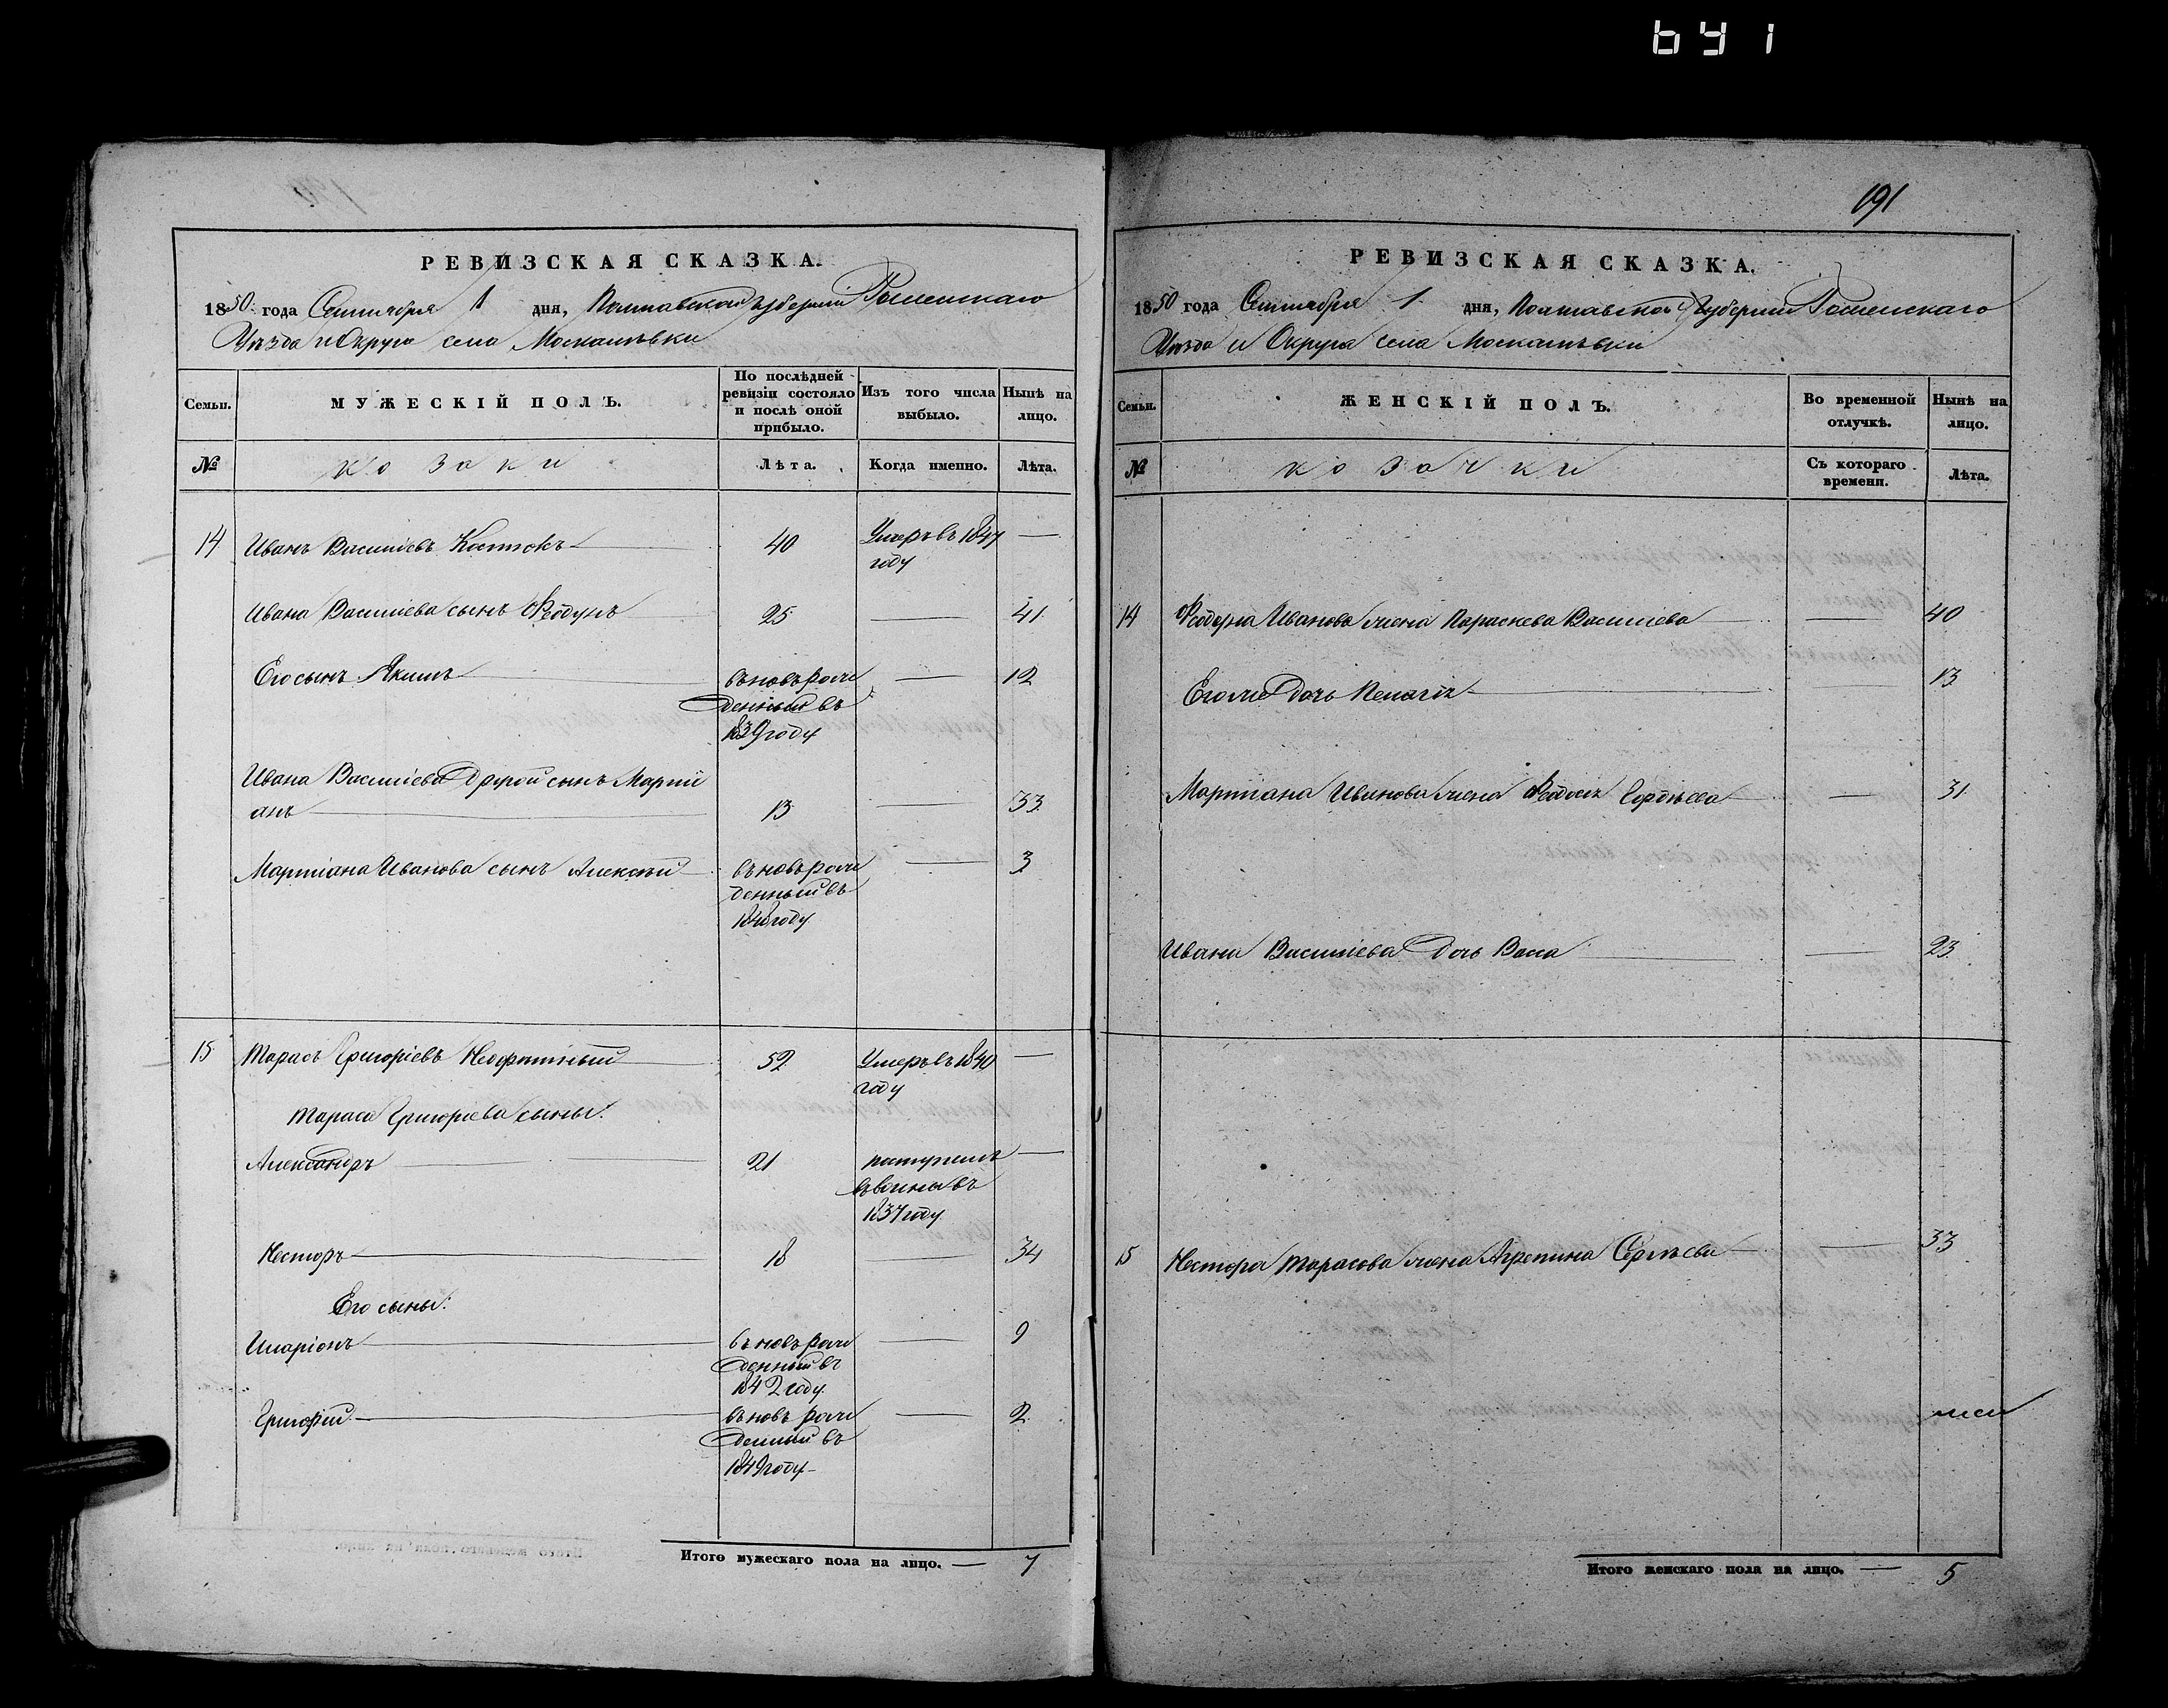 641
191
РЕВИЗСКАЯ СКАЗКА.
1850 года Сентября 1 дня, Полтавской Губернии Роменскаго
Уѣзда и Округа села Москалѣвки
Семьи.
МУЖЕСКІЙ ПОЛЪ.
По послѣдней ревизіи состояло и послѣ оной прибыло.
Изъ того числа выбыло.
Нынѣ на лицо.
№
козаки
Лѣта.
Когда именно.
Лѣта.
14 Иванъ Василіевъ 40 Умеръ въ 1847 —
году
Ивана Василіева сынъ 25 — 41.
Его сынъ Якимъ вьновь рож — 12
денный въ
1839 году
Ивана Василіева Другой сынъ Марти
анъ 13 — 33.
Мартіана Иванова сынъ Алексѣй вьновь рож — 3
денный въ
1848 году
15 Тарасъ Григоріевъ 52 Умеръ въ 1840 —
году
Тараса Григоріева сыны:
Александръ 21 —
въ
1837 году
Несторъ 18 — 34
Его сыны:
Иларіонъ вьновь рож — 9
денный въ
1842 году
Григорій вьновь рож — 2.
денный въ
1849 году
Итого мужескаго пола на лицо. — 7
РЕВИЗСКАЯ СКАЗКА.
1850 года Сентября 1. дня, Полтавской Губернии Роменскаго
Уѣзда и Округа села Москалѣвки
Семьи.
ЖЕНСКІЙ ПОЛЪ.
Во временной отлучкѣ.
Нынѣ на лицо.
№
козачки
Съ котораго времени.
Лѣта.
14 Иванова жена Параскева Василіева — 40
Его же Дочь Пелагія 13
Мартіана Иванова жена Феодосія — 31.
Ивана Василіева Дочь Васса — 23.
15 Нестора Тарасова жена Агрепина Сергѣева — 33
Итого женскаго пола на лицо. — 5